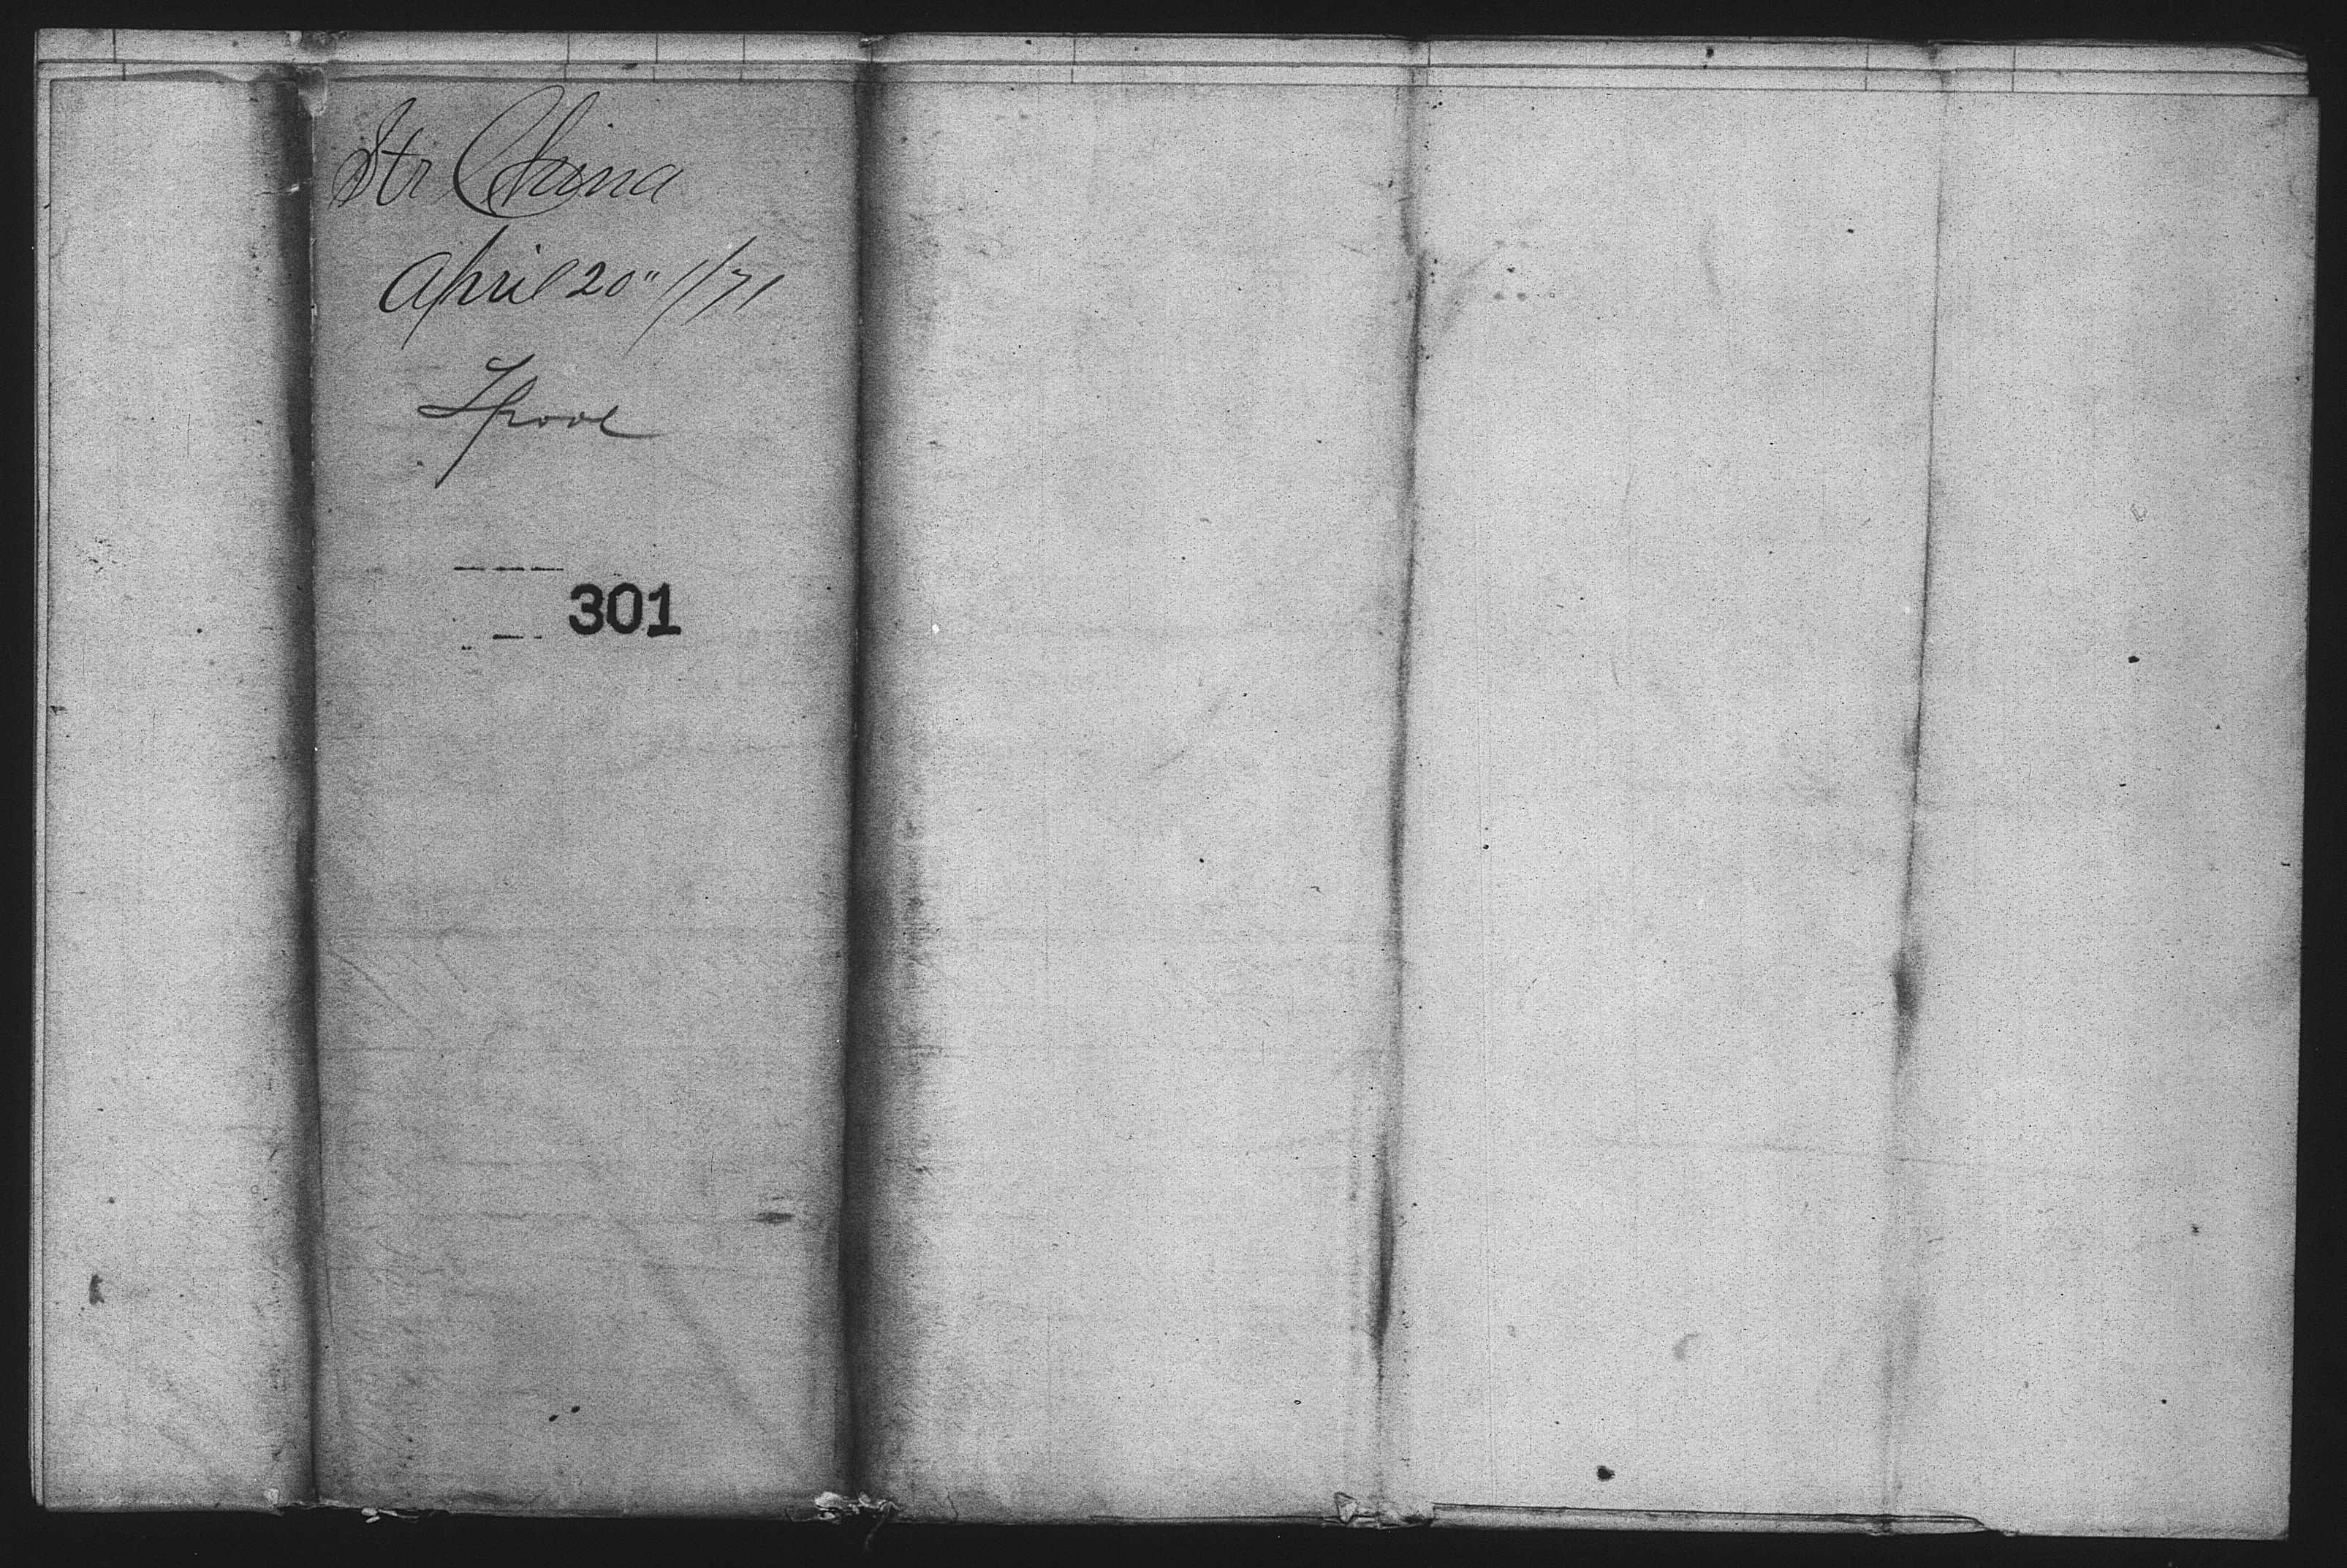 Str China
April 20" 1/71
Lpool
301